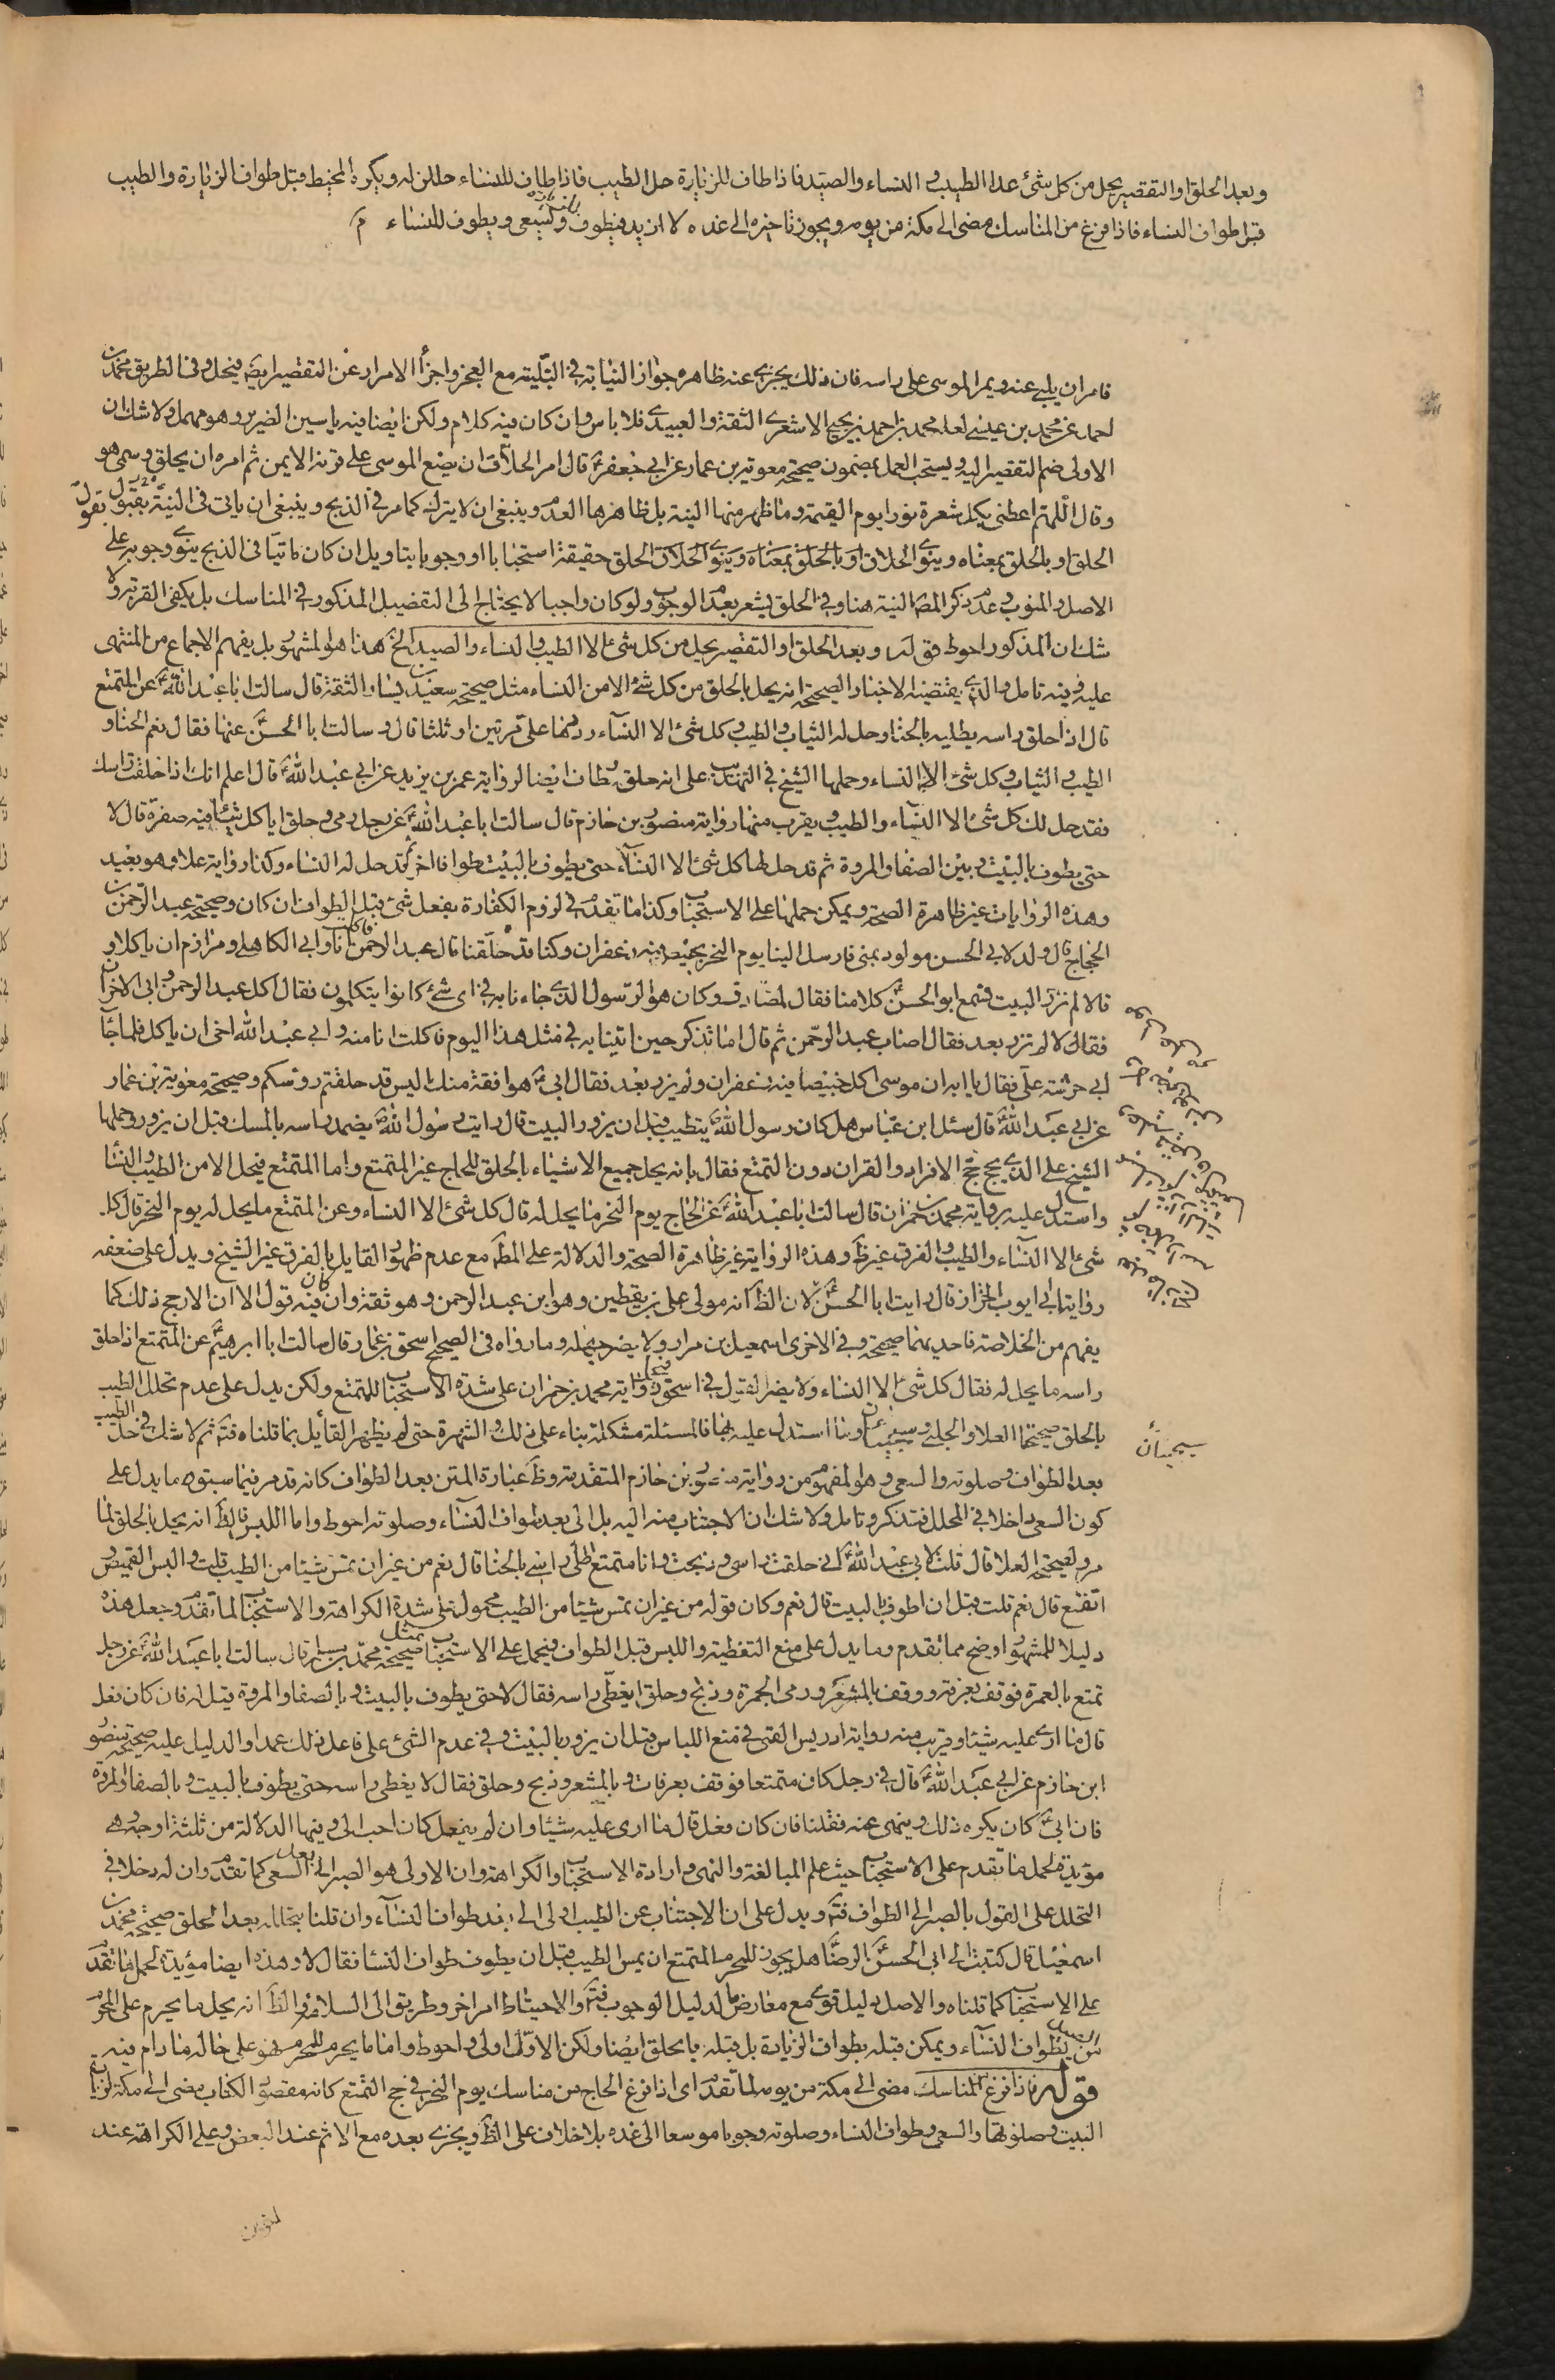 وبعد الحلق او التقصير يحل من كل شئ عدا الطيب و النساء والصيد فاذا طاف للزيارة حل الطيب فاذا طاف للنساء حللن له ويكره المخيط قبل طواف الزيارة والطيب
قبل طواف النساء فاذا فرغ من المناسك مضى الى مكة من يومه ويجوز تاخيره الى غده لا ازيد فيطوف ويسعى ويطوف للنساء
فامر ان يلبى عنه ويمر الموسى على راسه فان ذلك يجزى عنه ظاهره جواز النيابة فى التلبية مع العجز واجزأ الامرار عن التقصير ايضا فيحل وفى الطريق محمد بن
احمد عن محمد بن عيسى لعله محمد بن احمد بن يحيى الاشعرى الثقة والعبيدى فلا باس وان كان فيه كلام ولكن ايضا فيه ياسين الضرير وهو مهمل ولا شك ان
الاولى ضم التقصير اليه ويستحب العمل بمضمون صحيحة معوية بن عمار عن ابى جعفر قال امر الحلاق ان يضع الموسى على قرنه الايمن ثم امره ان يحلق وسمى هو
وقال اللهم اعطنى بكل شعرة نورا يوم القيمة وما ظهر منها النية بل ظاهرها العدم وينبغى ان لا يترك كما مر فى الذبح وينبغى ان ياتى فى النية بقول
الحلق او بالحلق بمعناه وينوى الحلاق او بالحلق بمعناه وينوى الحلاق الحلق حقيقة استحبابا او وجوبا بتاويل ان كان نائبا فى الذبح ينوى وجوبه على
الاصل والمنوب وعدم ذكر المصنف النية هنا وفى الحلق يشعر بعدم الوجوب ولو كان واجبا لا يحتاج الى التفصيل المذكور فى المناسك بل يكفى القربة ولا
شك ان المذكور احوط قوله وبعد الحلق او التقصير يحل من كل شئ الا الطيب والنساء والصيد الخ هذا هو المشهور بل يفهم الاجماع من المنتهى
عليه وفيه تامل والذى يقتضيه الاخبار الصحيحة انه يحل بالحلق من كل شئ الا من النساء مثل صحيحة سعيد بن يسار الثقة قال سالت ابا عبد الله عن المتمتع
قال اذا حلق راسه يطليه بالحنا وحل له الثياب والطيب وكل شئ الا النسآء رددها على مرتين او ثلثا قال وسالت ابا الحسن عنها فقال نعم الحنا و
الطيب والثياب وكل شئ الا النساء وحملها الشيخ فى التهذيب على انه حلق وطاف ايضا لرواية عمر بن يزيد عن ابى عبد الله قال اعلم انك اذا حلقت راسك
فقد حل لك كل شئ الا النسآء والطيب ويقرب منها رواية منصور بن حازم قال سالت ابا عبد الله عن رجل رمى وحلق اياكل شيئا فيه صفرة قال لا
حتى يطوف بالبيت وبين الصفا والمروة ثم قد حل له كل شئ الا النسآء حتى يطوف بالبيت طوافا اخر ثم قد حل له النساء وكذا رواية علا وهو بعيد
وهذه الروايات غير ظاهرة الصحة ويمكن حملها على الاستحباب وكذا ما تقدم فى لزوم الكفارة بفعل شئ قبل الطواف ان كان وصحيحة عبد الرحمن بن
الحجاج قال ولد لابى الحسن مولود بمنى فارسل الينا يوم النحر بخبيص فيه زعفران وكنا قد حلقنا قال عبد الرحمن فاكلت انا وابى الكاهلى ومرازم ان ياكلا و
قالا لم نزر البيت فسمع ابو الحسن كلامنا فقال لمصادف وكان هو الرسول الذى جاءنا به فى اى شئ كانوا يتكلمون فقال اكل عبد الرحمن وابى الاخران
فقالا لم نزر بعد فقال اصاب عبد الرحمن ثم قال اما تذكر حين اتينا به فى مثل هذا اليوم فاكلت انا منه وابى عبد الله اخى ان ياكل فلما جآء
ابى حرشه على فقال يا ابه ان موسى اكل خبيصا فيه زعفران ولم يزر بعد فقال ابى هو افقه منك اليس قد حلقتم رؤسكم وصحيحة معوية بن عمار
عن ابى عبد الله قال سئل ابن عباس هل كان رسول الله يتطيب قبل ان يزور البيت قال رايت رسول الله يضمد راسه بالمسك قبل ان يزور وحملها
الشيخ على الذى يحج حج الافراد والقران دون التمتع فقال بانه يحل جميع الاشياء بالحلق للحاج غير المتمتع واما المتمتع فيحل الا من الطيب والنسا
واستدل عليه برواية محمد بن حمران قال سالت ابا عبد الله عن الحاج يوم النحر ما يحل له قال كل شئ الا النساء وعن المتمتع ما يحل له يوم النحر قال كل
شئ الا النسآء والطيب الفرق غير ظ وهذه الرواية غير ظاهرة الصحة والدلالة على المط مع عدم ظهور القايل بالفرق غير الشيخ ويدل على ضعفه
رواية ابى ايوب الخزاز قال رايت ابا الحسن لان الظ انه مولى على بن يقطين وهو ابن عبد الرحمن وهو ثقة وان كان فيه قول الا ان الارجح ذلك كما
يفهم من الخلاصة فاحديهما صحيحة وفى الاخرى اسمعيل بن مرار ولا يضر جهله وما رواه فى الصحيح اسحق بن عمار قال سالت ابا ابرهيم عن المتمتع اذا حلق
راسه ما يحل له فقال كل شئ الا النساء ولا يضر القيل فى اسحق فيحمل رواية محمد بن حمران على شدة الاستحباب للمتمتع ولكن يدل على عدم تحلل الطيب
بالحلق صحيحتا العلا والحلبى وسيجيئان وبنا استدل عليه بها فالمسئلة مشكلة بناء على ذلك والشهرة حتى لم يظهر القائل بما قلناه فتم ثم لا شك فى حل الطيب
سيجيئان
بعد الطواف وصلوته والسعى وهو المفهوم من رواية منصور بن حازم المتقدمة وظ عبارة المتن بعد الطواف كانه قد مر فيما سبق ما يدل على
كون السعى داخلا فى المحلل فتذكر وتامل ولا شك ان الاجتناب منه اليه بل الى بعد طواف النسآء وصلوته احوط واما اللبس فالظ انه يحل بالحلق لما
مر ولصحيحة العلا قال قلت لابى عبد الله انى حلقت راسى وذبحت وانا متمتع اطلى راسى بالحنا قال نعم من غير ان تمس شيئا من الطيب قلت والبس القميص و
اتقنع قال نعم قلت قبل ان اطوف بالبيت قال نعم وكان قوله من غير ان تمس شيئا من الطيب محمول على شدة الكراهة والاستحباب لما تقدم وجعل هذه
دليلا للمشهور اوضح مما تقدم وما يدل على منع التغطية واللبس قبل الطواف فيحمل على الاستحباب مثل صحيحة محمد بن مسلم قال سالت ابا عبد الله عن رجل
تمتع بالعمرة فوقف بعرفة ووقف بالمشعر ورمى الجمرة وذبح وحلق ايغطى راسه فقال لا حتى يطوف بالبيت وبالصفا والمروة قيل له فان كان فعل
قال ما ارى عليه شيئا وقريب منه رواية ادريس القمى فى منع اللباس قبل ان يزور بالبيت وفى عدم الشئ على فاعل ذلك عمدا والدليل عليه صحيحة منصور
ابن حازم عن ابى عبد الله قال فى رجل كان متمتعا فوقف بعرفات وبالمشعر وذبح وحلق فقال لا يغطى راسه حتى يطوف بالبيت وبالصفا والمروة
فان ابى كان يكره ذلك وينهى عنه فقلنا فان كان فعل قال ما ارى عليه شيئا وان لم يفعل كان احب الى وفيها الدلالة من ثلثة اوجه هى
مؤيدة لحمل ما تقدم على الاستحباب حيث علم المبالغة والنهى وارادة الاستحباب والكراهة وان الاولى هو الصبر الى بعد السعى كما تقدم وان له دخلا فى
التحلل على القول بالصبر الى الطواف فتم ويدل على ان الاجتناب عن الطيب اولى الى بعد طواف النسآء وان قلنا بتحلله بعد الحلق صحيحة محمد بن
اسمعيل قال كتبت الى ابى الحسن الرضا هل يجوز للمحرم المتمتع ان يمس الطيب قبل ان يطوف طواف النسا فقال لا وهذه ايضا مؤيدة لحمل ما تقدم
على الاستحباب كما قلناه والاصل دليل قوى مع معارض ما لدليل الوجوب فتم والاحتياط امر اخر وطريق الى السلامة والظ انه يحل ما يحرم على المحرم
من الصيد بطواف النسآء ويمكن قبله بطواف الزيارة بل قبله بالحلق ايضا ولكن الاول اولى واحوط واما ما يحرم للحرم فهو على حاله ما دام فيه
قوله فاذا فرغ المناسك مضى الى مكة من يومه لما تقدم اى اذا فرغ الحاج من مناسك يوم النحر فى حج التمتع كانه مقصود الكتاب مضى الى مكة لزيارة
البيت وصلوتها والسعى وطواف النساء وصلوته وجوبا موسعا الى غده بلا خلاف على الظ ويجزى بعده مع الاثم عند البعض وعلى الكراهة عند